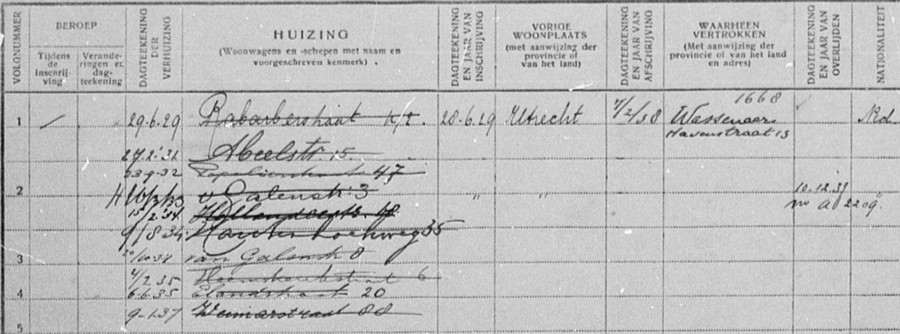 VOLGNUMMER
BEROEP
Tijdens de inschrijving
Veranderingen en dagteekening
DAGTEEKENING DER VERHUIZING
HUIZING
(Woonwagens en -schepen met naam en voorgeschreven kenmerk).
DAGTEEKENING EN JAAR VAN INSCHRIJVING
VORIGE WOONPLAATS
(met aanwijzing der provincie of van het land)
DAGTEEKENING EN JAAR VAN AFSCHRIJVING
WAARHEEN VERTROKKEN
(Met aanwijzing der provincie of van het land en adres)
DAGTEEKENING EN JAAR VAN OVERLIJDEN
NATIONALITEIT
1 / 29-6-29 Rabarberstraat 28-6-29 Utrecht 7/2/38 Wassenaar 1668 Ned.
Havenstraat 13
Abeelstr 15
23-9-32 47
2 v Galenstr. 3 " " 10.12.39 "
15/2 '34 18 2209.
9/8 34 35
3 van Galenstr 8
4/2 35 6
4 6-6-35 Elandstraat 20
9-1-37 Weimarstraat 88
5